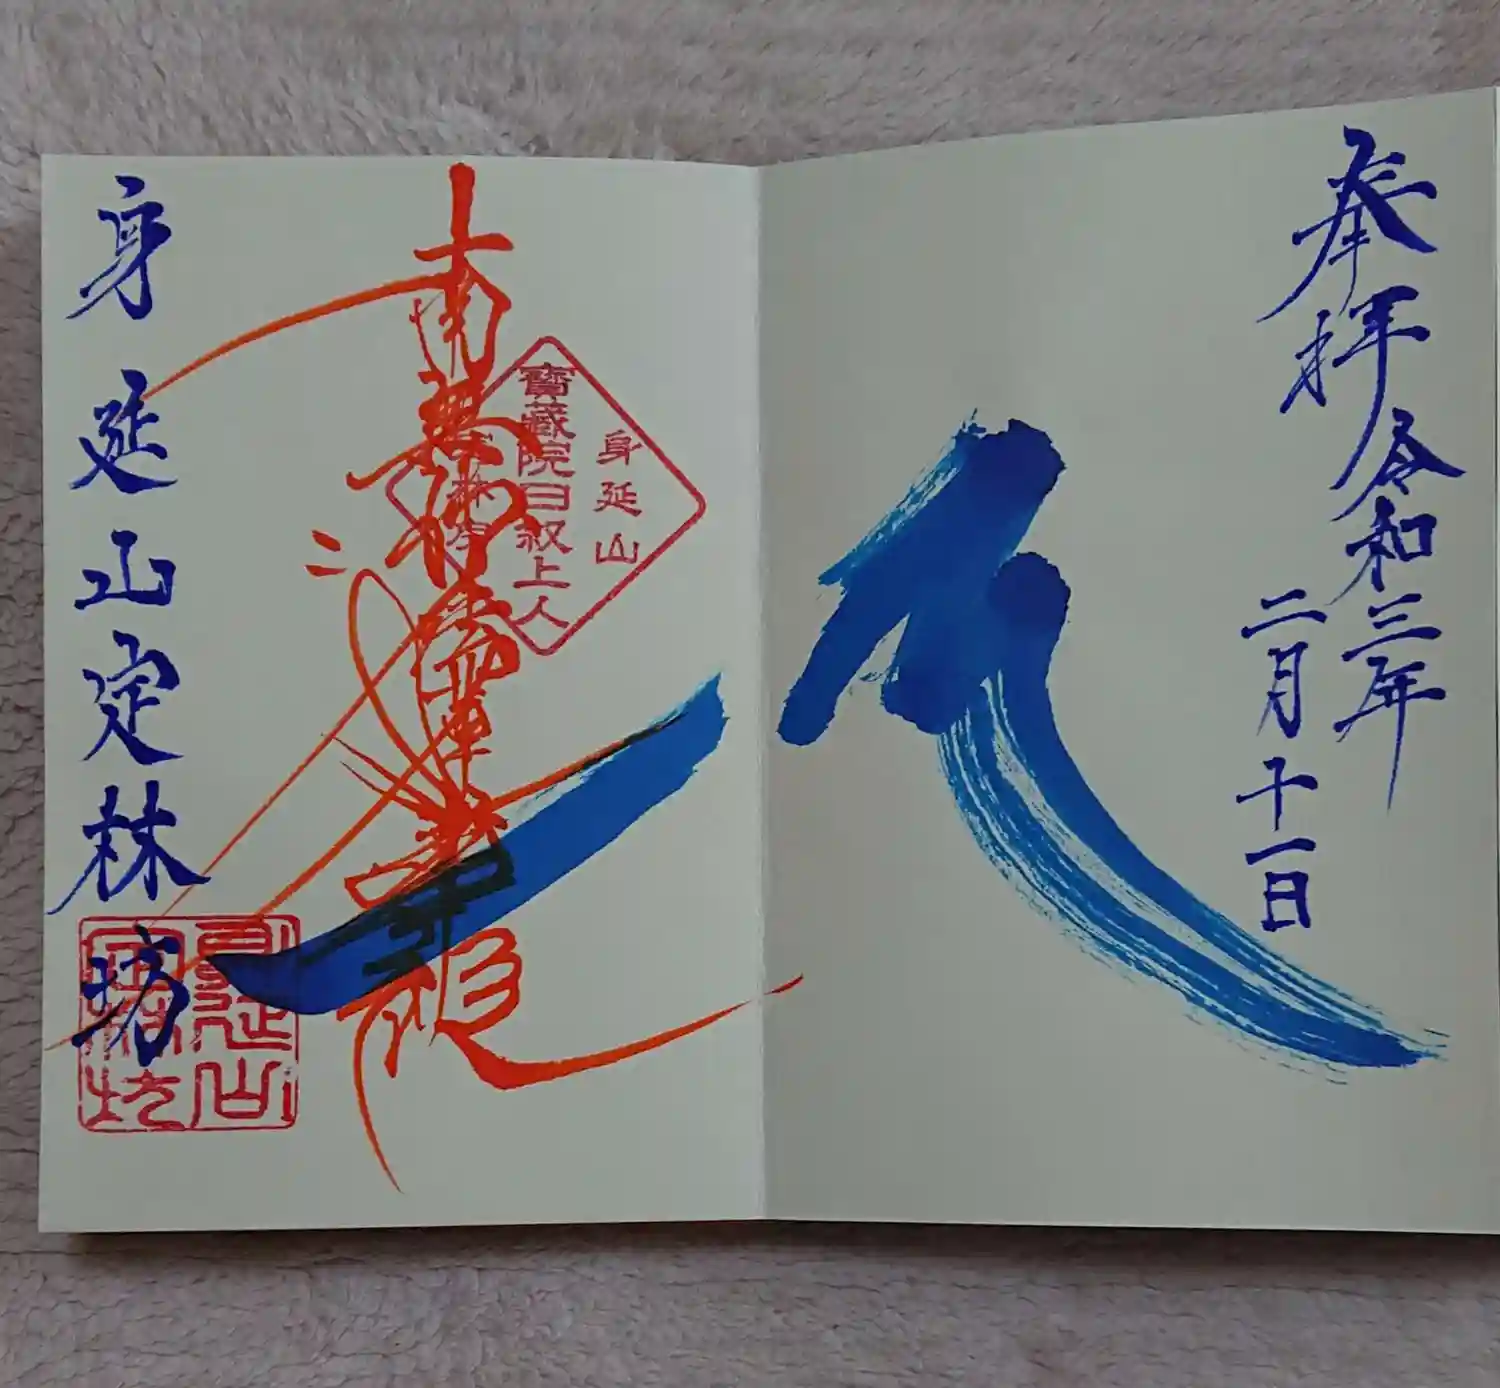 奉拝 令和三年
二月十一日
身延山
寶藏院日叙上人
定林坊
南無
身延山定林坊
身延山
定林坊